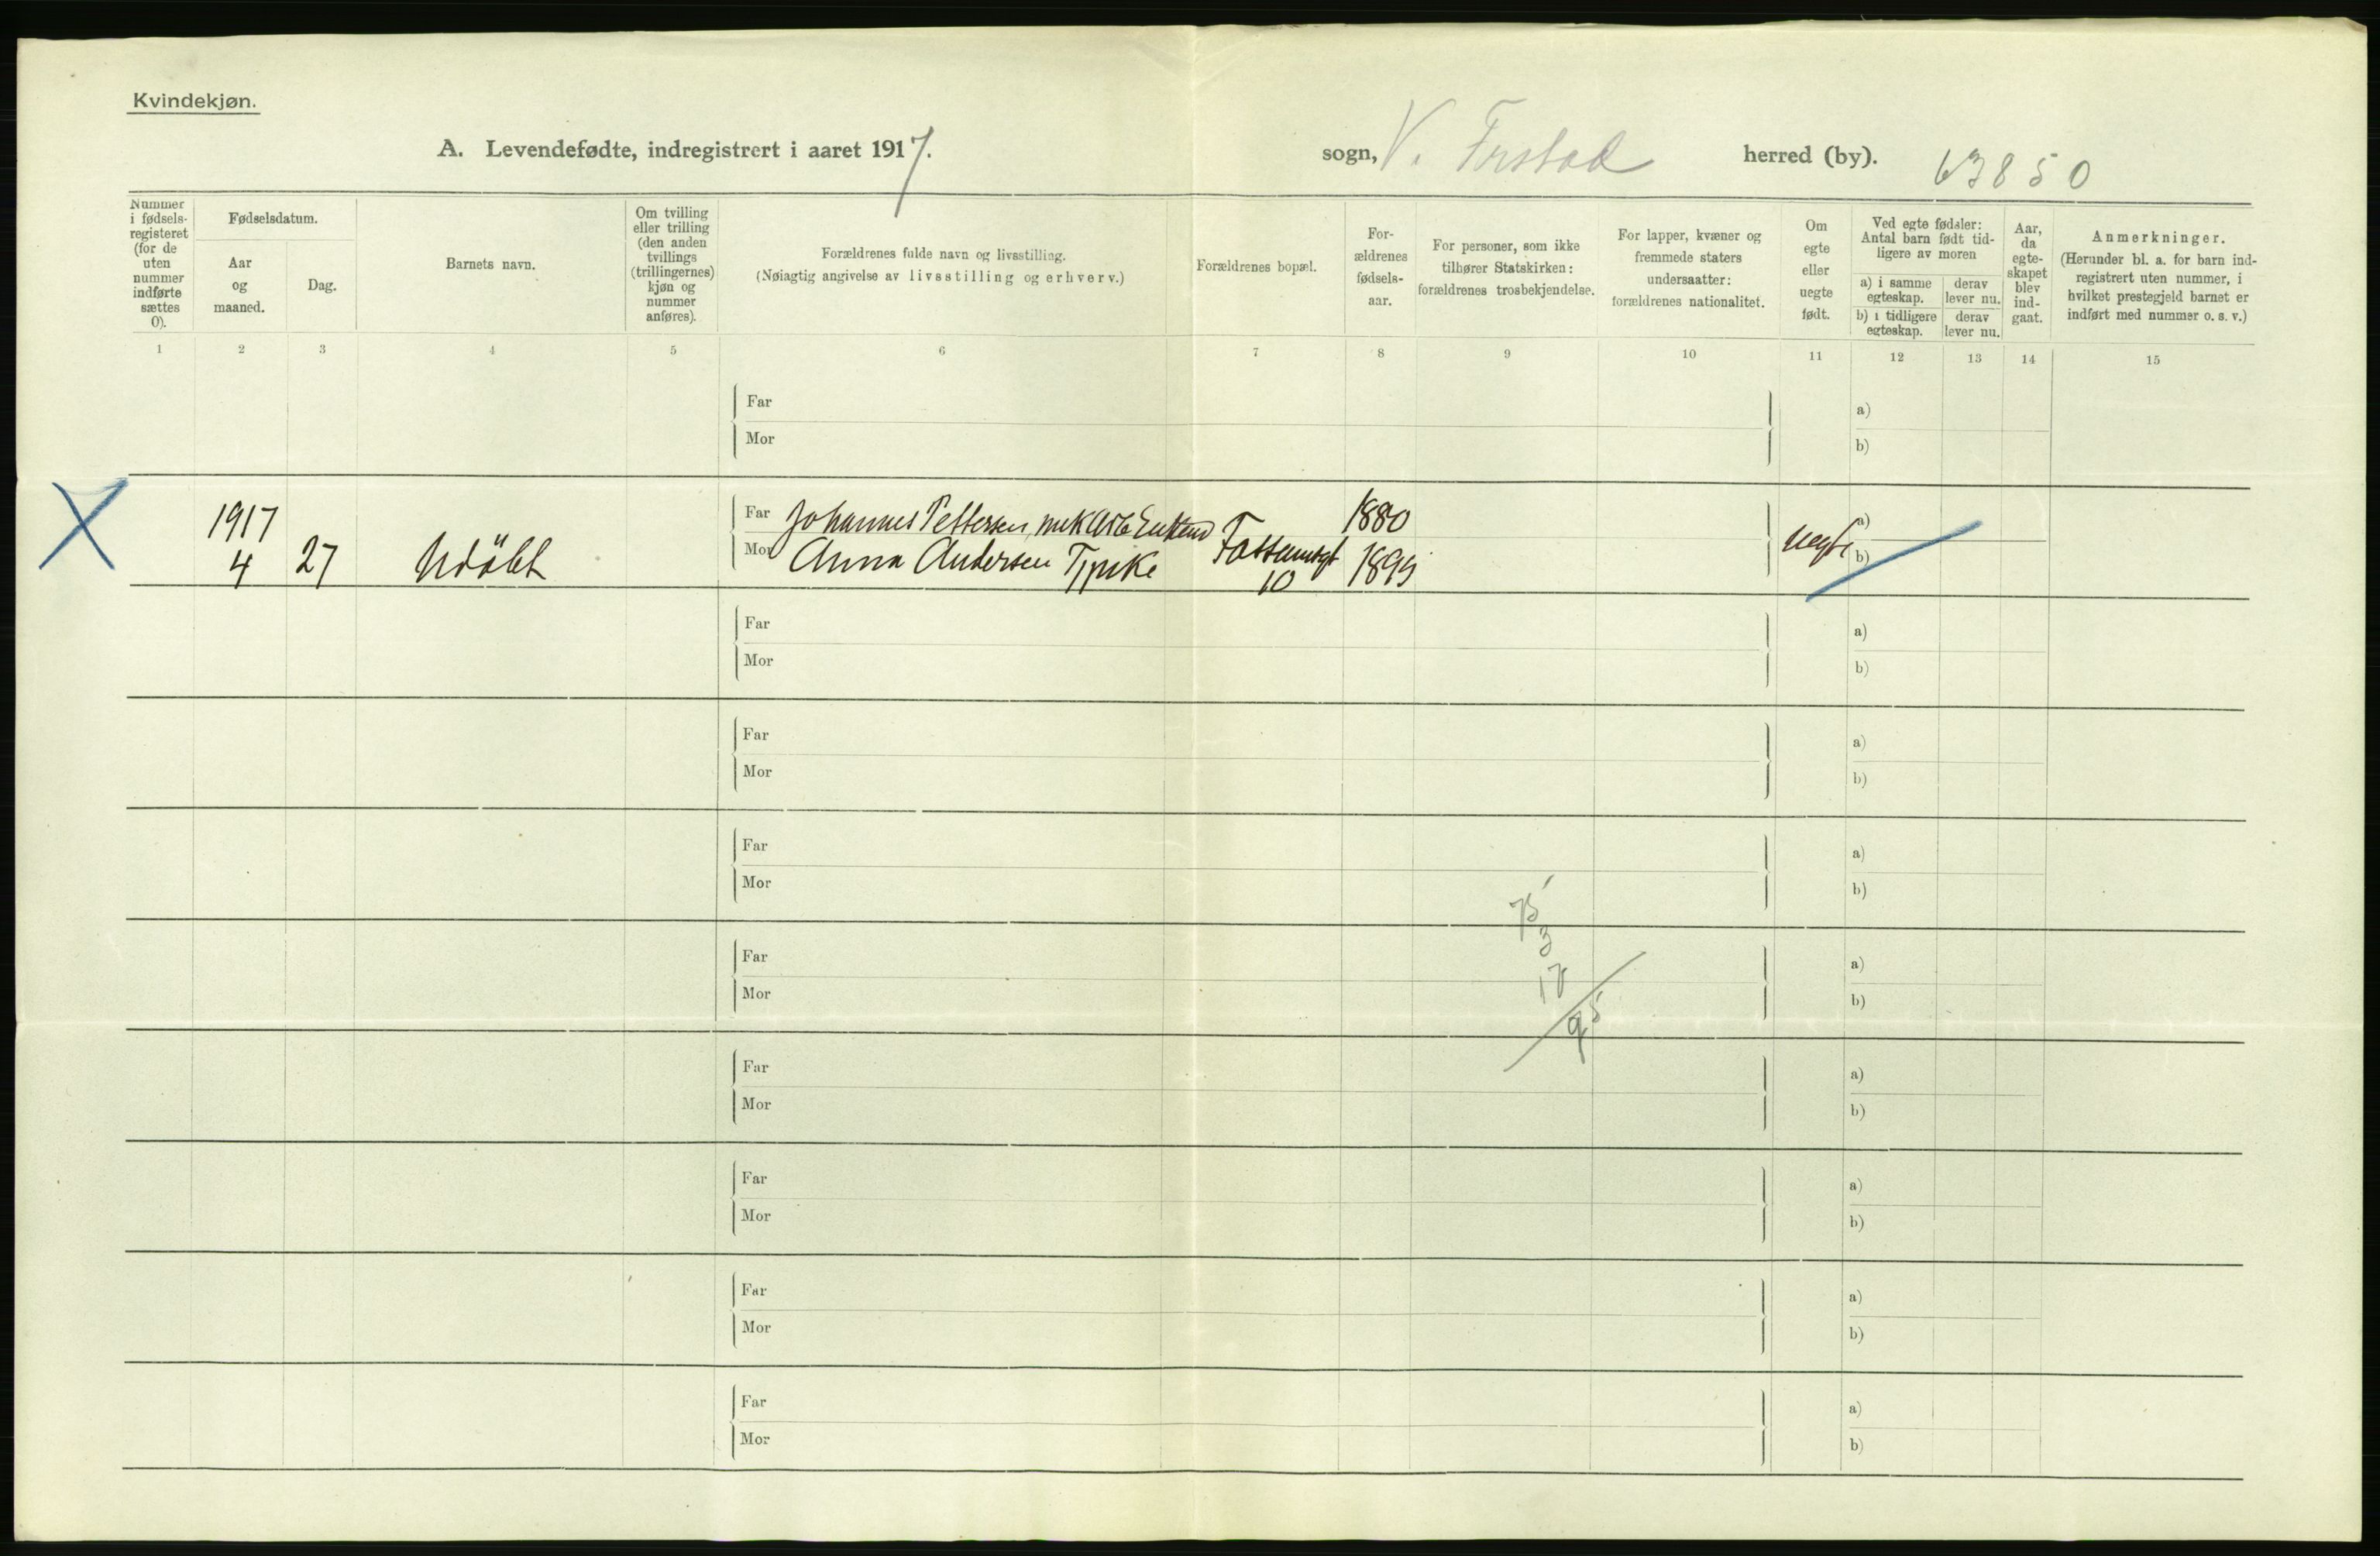 Kvindekjøn.
A. Levendefødte, indregistrert i aaret 1917.
sogn, V. Frstad herred (by). 63850
Nummer i fødsels- registeret (for de uten nummer indførte sættes 0).
Fødselsdatum.
Aar og maaned.
Dag.
Barnets navn.
Om tvilling eller trilling (den anden tvillings (trillingernes) kjøn og nummer anføres).
Forældrenes fulde navn og livsstilling.
(Nøiagtig angivelse av livsstilling og erhverv.)
Forældrenes bopæl.
For- ældrenes fødsels- aar.
For personer, som ikke tilhører Statskirken: forældrenes trosbekjendelse.
For lapper, kvæner og fremmede staters undersaatter: forældrenes nationalitet.
Om egte eller uegte født.
Ved egte fødsler: Antal barn født tid- ligere av moren
a) i samme egteskap.
derav lever nu.
b) i tidligere egteskap.
derav lever nu.
Aar, da egte- skapet blev ind- gaat.
Anmerkninger.
(Herunder bl. a. for barn ind- registrert uten nummer, i hvilket prestegjeld barnet er indført med nummer o. s. v.)
1 2 3 4 5 6 7 8 9 10 11 12 13 14 15
Far a)
Mor b)
1917 Far Johannes Pettersen, mek 1880 a)
4 27 Udöbt Mor Anna Andersen 10 1895 uegte b)
Far a)
Mor b)
Far a)
Mor b)
Far a)
Mor b)
75
3
Far a)
Mor 17 b)
95
Far a)
Mor b)
Far a)
Mor b)
Far a)
Mor b)
Far a)
Mor b)